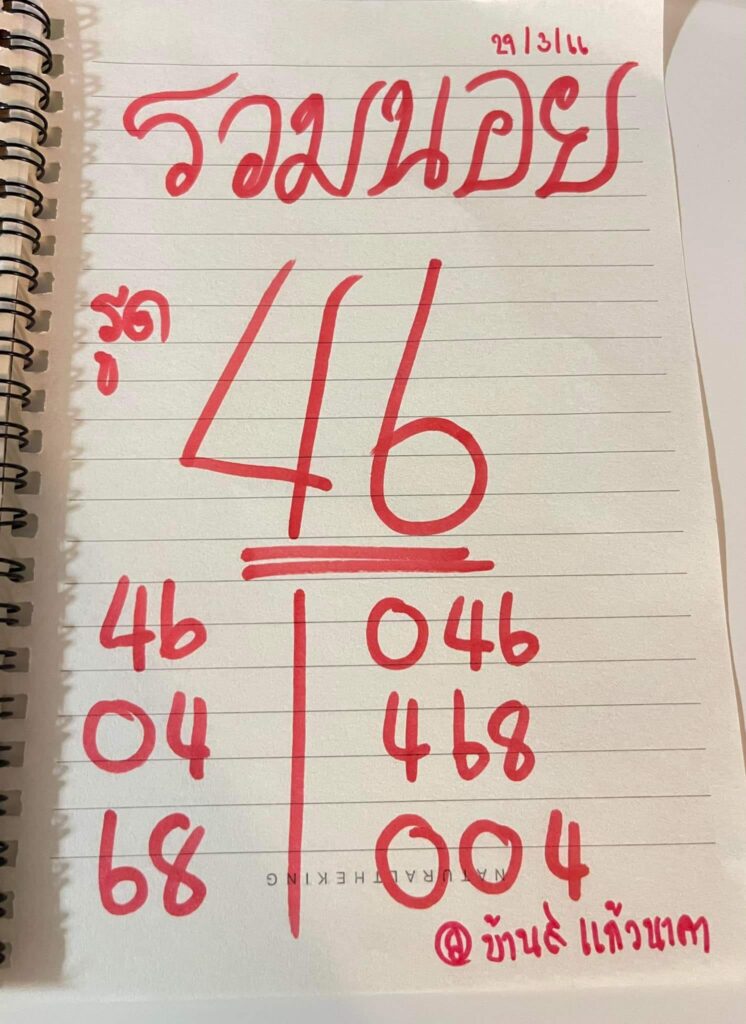 29/3/66
รวมนอย
รูด
46
46
046
04
468
68
004
NATURALTHEKING
@บ้านส์ แก้วนาคา